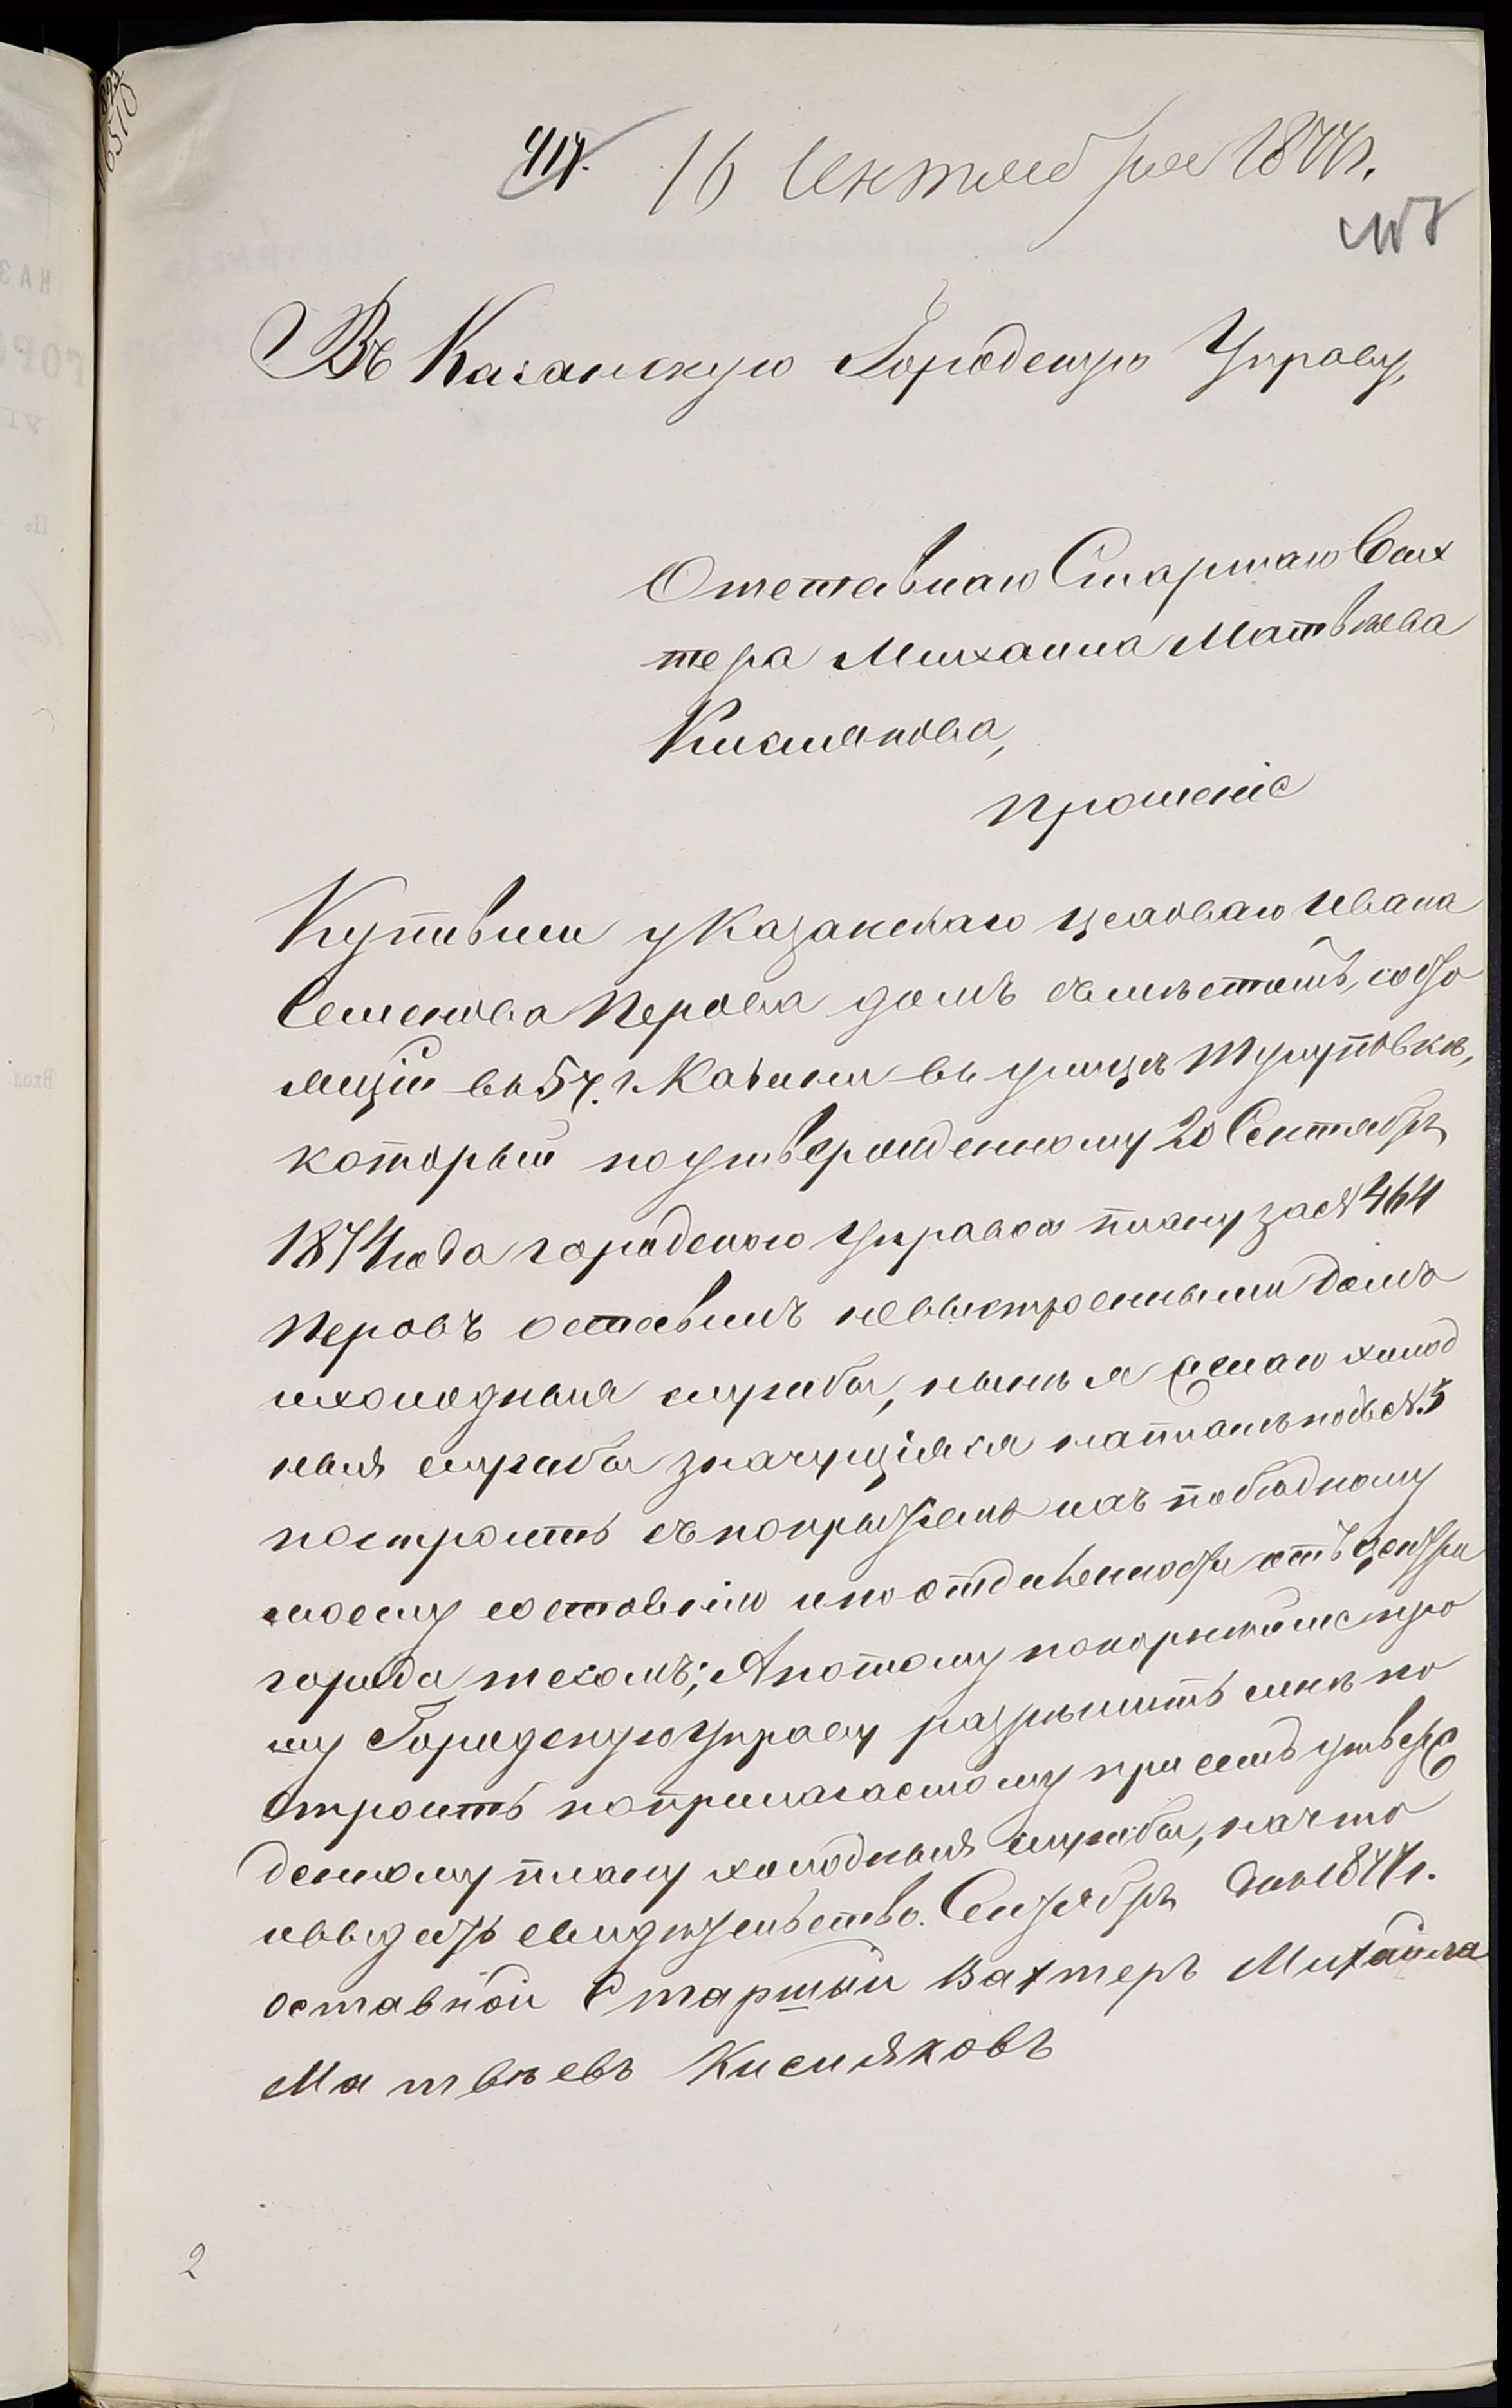 417. 16 Сентября 1877г.
Въ Казанскую Городскую Управу,
Отставнаго Старшаго Вах
тера Михаила Матвѣева
Кислякова,
прошеніе
Купивши у Казанскаго цеховаго Ивана
Семенова Перова домъ съ мѣстомъ, состо
ящій въ 5 ч. г. Казани въ улицѣ
который по утвержденному 20 Сентября
1874 года городскою Управою плану за №464
Перовъ оставилъ невыстроенными домъ
и холодныя службы, нынѣ я желаю холод
ныя службы значущіяся на планѣ подъ №5
построить съ покрытіемъ ихъ по бѣдному
моему состоянію и по отдаленности отъ центра
города тесомъ; А потому покорнѣйше про
шу Городскую Управу разрѣшить мнѣ по
строить по прилагаемому при семъ утверж
денному плану холодныя службы, на что
и выдать свидѣтельство. Сентябрь дня 1877г.
оставной Старший Вахтеръ Михаила
Матвѣевъ Кисляковъ
2